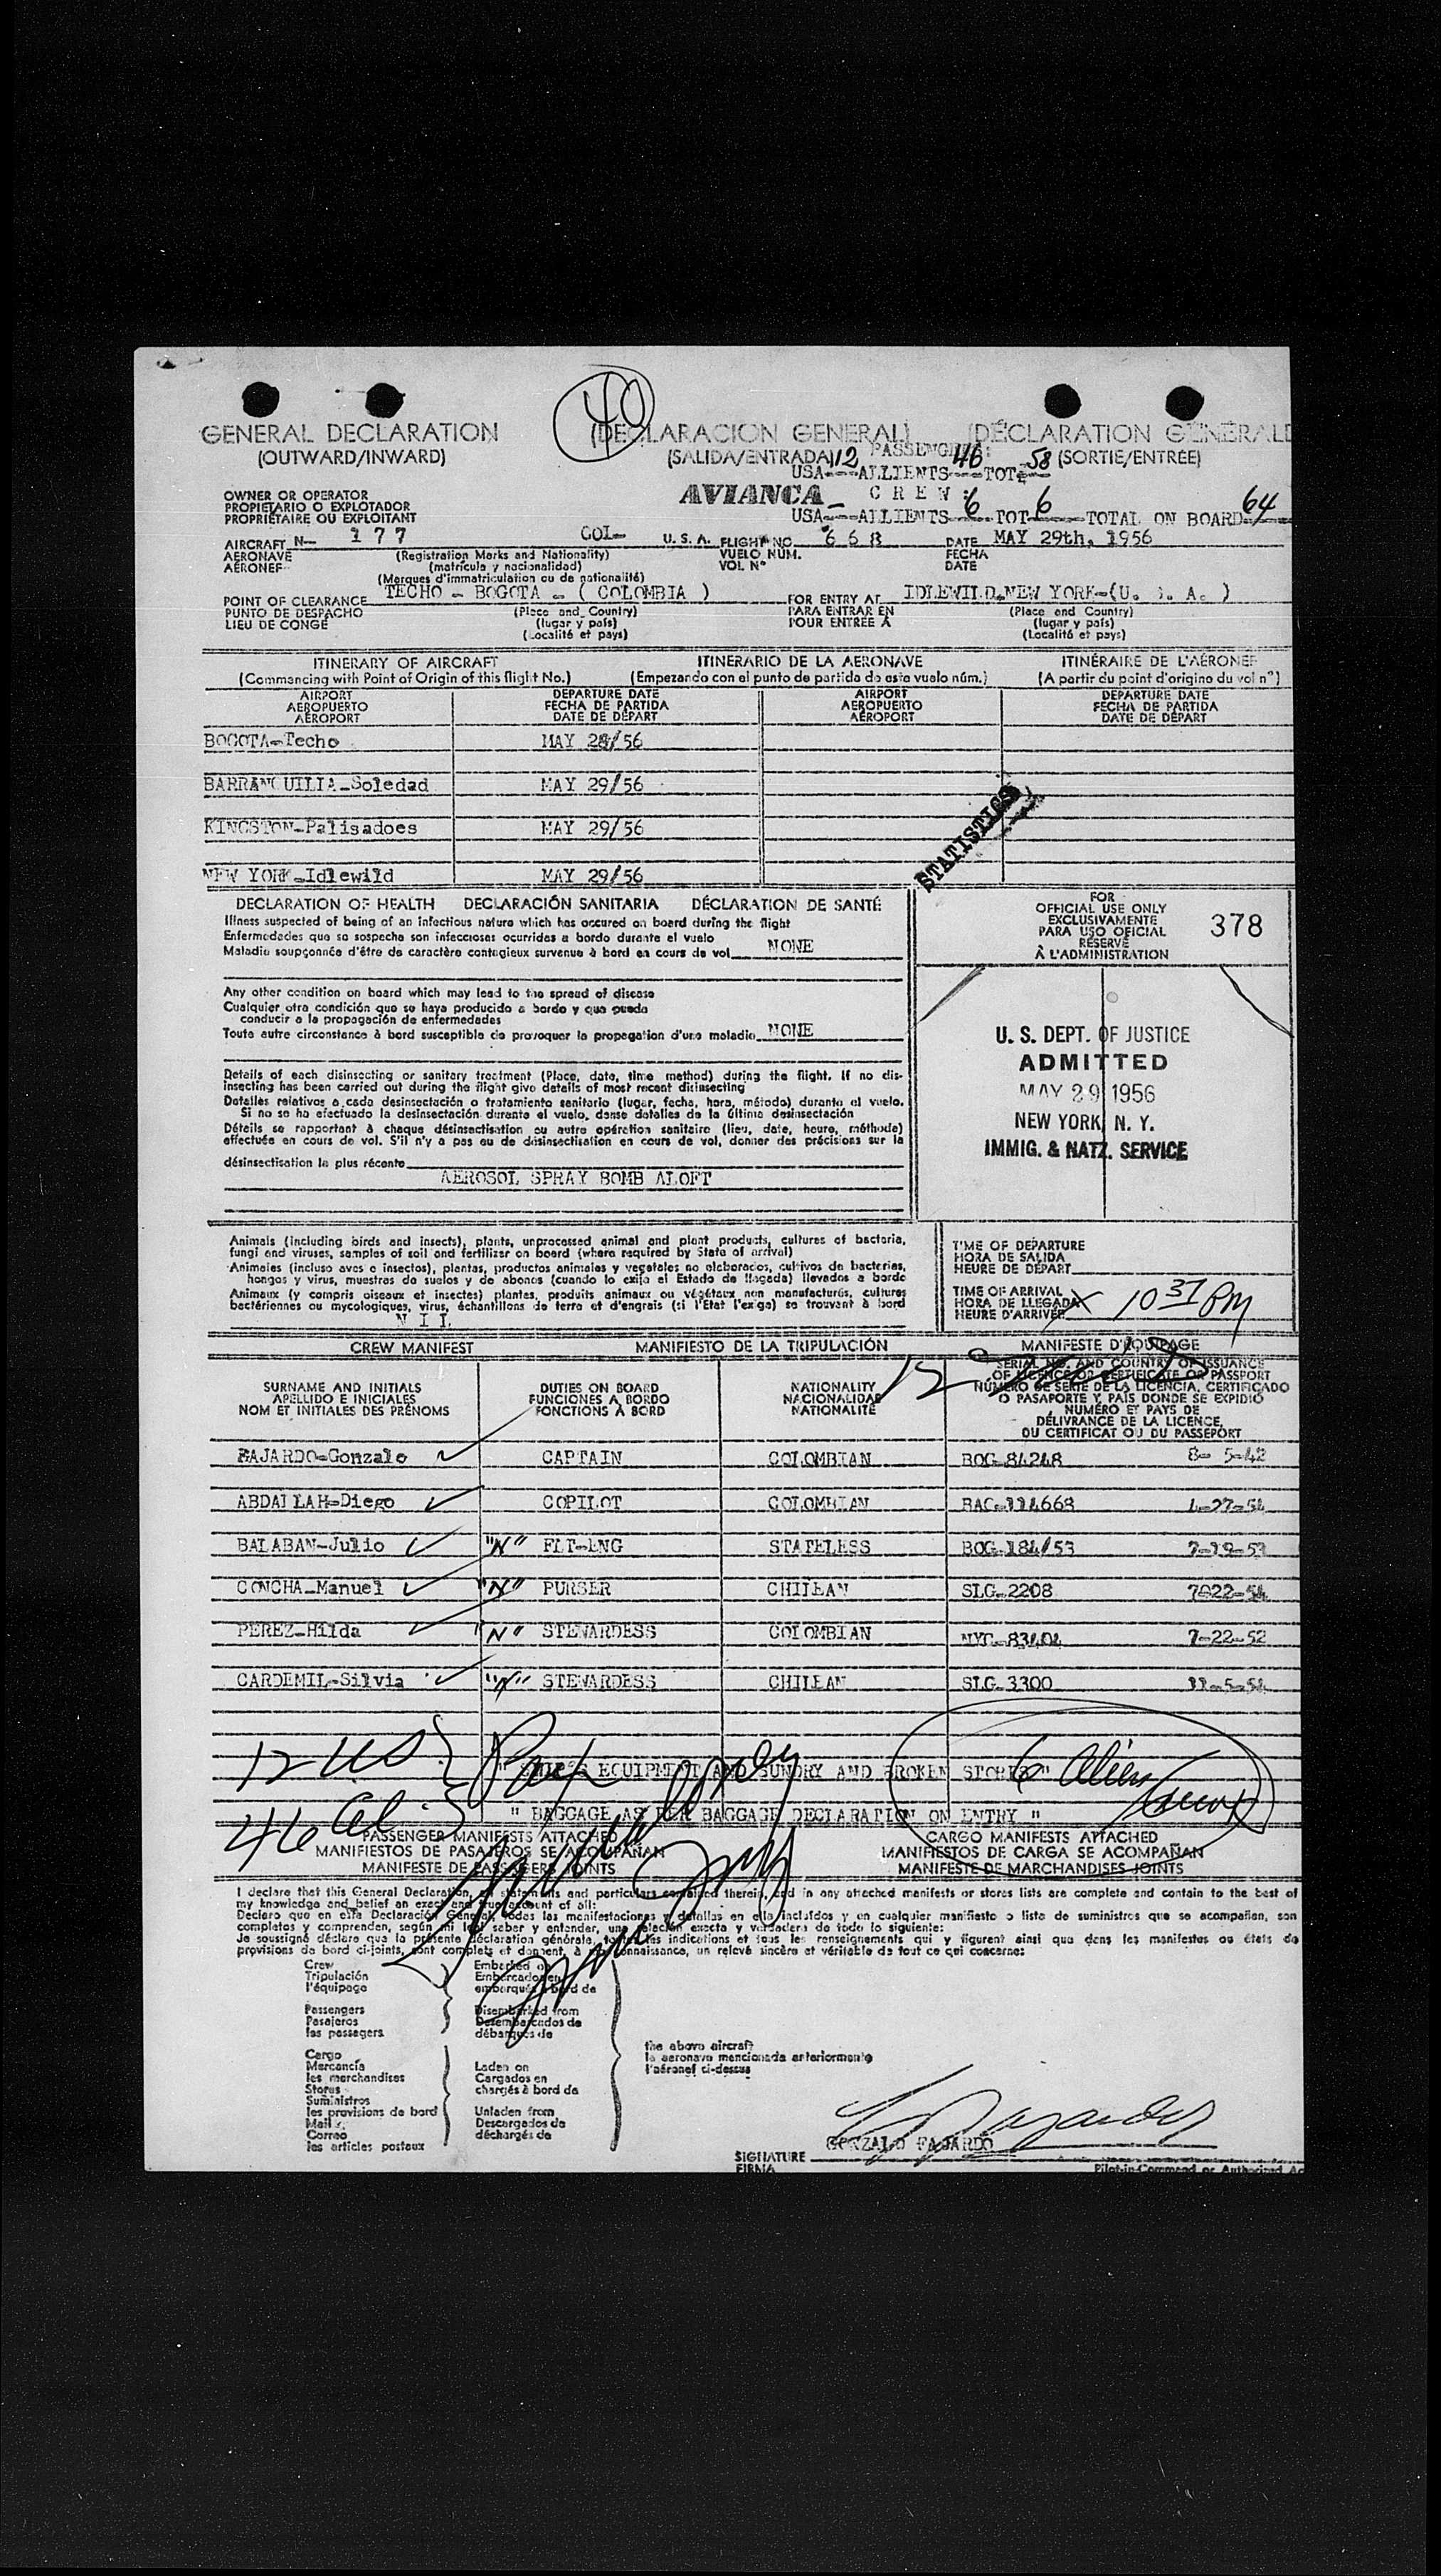 40
GENERAL DECLARATION (DECLARACION GENERAL) (DÉCLARATION GÉNÉRALE
(OUTWARD/INWARD) (SALIDA/ENTRADA) (SORTIE/ENTRÉE)
PASSENGERS:
USA 12 ALLIENTS 46 TOT 58
AVIANCA C R E W
USA - ALLIENTS 6 TOT 6 TOTAL ON BOARD 64
OWNER OR OPERATOR
PROPIETARIO O EXPLOTADOR
PROPRIÉTAIRE OU EXPLOITANT
AIRCRAFT N- 177 COL- U. S. A. FLIGHT NO. 668 DATE MAY 29th, 1956
AERONAVE (Registration Marks and Nationality) VUELO NUM. FECHA
AÉRONEF (matrícula y nacionalidad) VOL N° DATE
(Marques d'immatriculation ou de nationalité)
POINT OF CLEARANCE TECHO - BOGOTA - ( COLOMBIA ) FOR ENTRY AT IDLEWILD-NEW YORK-(U. S. A. )
PUNTO DE DESPACHO (Place and Country) PARA ENTRAR EN (Place and Country)
LIEU DE CONGÉ (lugar y país) POUR ENTRÉE À (lugar y país)
(Localité et pays) (Localité et pays)
ITINERARY OF AIRCRAFT ITINERARIO DE LA AERONAVE ITINÉRAIRE DE L'AÉRONEF
(Commencing with Point of Origin of this flight No.) (Empezando con el punto de partida de este vuelo núm.) (A partir du point d'origine du vol n°)
AIRPORT DEPARTURE DATE AIRPORT DEPARTURE DATE
AEROPUERTO FECHA DE PARTIDA AEROPUERTO FECHA DE PARTIDA
AÉROPORT DATE DE DÉPART AÉROPORT DATE DE DÉPART
BOGOTA-Techo MAY 28/56
BARRANQUILLA-Soledad MAY 29/56
KINGSTON-Palisadoes MAY 29/56
NEW YORK-Idlewild MAY 29/56
STATISTICS
DECLARATION OF HEALTH DECLARACIÓN SANITARIA DÉCLARATION DE SANTÉ
Illness suspected of being of an infectious nature which has occured on board during the flight
Enfermedades que se sospecha son infecciosas ocurridas a bordo durante el vuelo
Maladie soupçonnée d'être de caractère contagieux survenue à bord en cours de vol NONE
Any other condition on board which may lead to the spread of disease
Cualquier otra condición que se haya producido a bordo y que pueda
conducir a la propagación de enfermedades
Toute autre circonstance à bord susceptible de provoquer la propagation d'une maladie NONE
Details of each disinsecting or sanitary treatment (Place, date, time method) during the flight. If no dis-
insecting has been carried out during the flight give details of most recent disinsecting
Detalles relativos a cada desinsectación o tratamiento sanitario (lugar, fecha, hora, método) durante el vuelo.
Si no se ha efectuado la desinsectación durante el vuelo, dense detalles de la última desinsectación
Détails se rapportant à chaque désinsectisation ou autre opération sanitaire (lieu, date, heure, méthode)
effectuée en cours de vol. S'il n'y a pas eu de désinsectisation en cours de vol, donner des précisions sur la
désinsectisation la plus récente
AEROSOL SPRAY BOMB ALOFT
FOR
OFFICIAL USE ONLY
EXCLUSIVAMENTE
PARA USO OFICIAL
RÉSERVÉ
À L'ADMINISTRATION
378
U. S. DEPT. OF JUSTICE
ADMITTED
MAY 29 1956
NEW YORK, N. Y.
IMMIG. & NATZ. SERVICE
Animals (including birds and insects), plants, unprocessed animal and plant products, cultures of bacteria,
fungi and viruses, samples of soil and fertilizer on board (where required by State of arrival)
Animales (incluso aves e insectos), plantas, productos animales y vegetales no elaborados, cultivos de bacterias,
hongos y virus, muestras de suelos y de abonos (cuando lo exija el Estado de llegada) llevados a bordo
Animaux (y compris oiseaux et insectes) plantes, produits animaux ou végétaux non manufacturés, cultures
bactériennes ou mycologiques, virus, échantillons de terre et d'engrais (si l'Etat l'exige) se trouvant à bord
N I L
TIME OF DEPARTURE
HORA DE SALIDA
HEURE DE DÉPART
TIME OF ARRIVAL
HORA DE LLEGADA X 10 37 PM
HEURE D'ARRIVÉE
CREW MANIFEST MANIFIESTO DE LA TRIPULACIÓN MANIFESTE D'ÉQUIPAGE
SURNAME AND INITIALS DUTIES ON BOARD NATIONALITY
APELLIDO E INICIALES FUNCIONES A BORDO NACIONALIDAD
NOM ET INITIALES DES PRÉNOMS FONCTIONS À BORD NATIONALITÉ
SERIAL NO. AND COUNTRY OF ISSUANCE
OF LICENCE OR CERTIFICATE OR PASSPORT
NÚMERO DE SERIE DE LA LICENCIA, CERTIFICADO
O PASAPORTE Y PAÍS DONDE SE EXPIDIÓ
NUMÉRO ET PAYS DE
DÉLIVRANCE DE LA LICENCE,
OU CERTIFICAT OU DU PASSEPORT
12
FAJARDO-Gonzalo CAPTAIN COLOMBIAN BOG-84248 8- 5-42
ABDALLAH-Diego COPILOT COLOMBIAN BAC-114668 4-27-54
BALABAN-Julio "N" FLT-ENG STATELESS BOG-184/53 7-19-53
CONCHA-Manuel "N" PURSER CHILEAN SLG-2208 7022-54
PEREZ-Hilda "N" STEWARDESS COLOMBIAN NYC-83404 7-22-52
CARDEMIL-Silvia "N" STEWARDESS CHILEAN SLG-3300 11-5-54
12 US
EQUIPMENT AND SUNDRY AND BROKEN STORES "
6 Alien
" BAGGAGE AS PER BAGGAGE DECLARATION ON ENTRY "
46 al
PASSENGER MANIFESTS ATTACHED CARGO MANIFESTS ATTACHED
MANIFIESTOS DE PASAJEROS SE ACOMPAÑAN MANIFIESTOS DE CARGA SE ACOMPAÑAN
MANIFESTE DE PASSAGERS JOINTS MANIFESTE DE MARCHANDISES JOINTS
I declare that this General Declaration, all statements and particulars contained therein, and in any attached manifests or stores lists are complete and contain to the best of
my knowledge and belief an exact and true account of all:
Declaro que en esta Declaración General, todas las manifestaciones y detalles en ella incluídos y en cualquier manifiesto o lista de suministros que se acompañan, son
completos y comprenden, según mi leal saber y entender, una relación exacta y verdadera de todo lo siguiente:
Je soussigné déclare que la présente déclaration générale, toutes les indications et tous les renseignements qui y figurent ainsi que dans les manifestes ou états de
provisions de bord ci-joints, sont complets et donnent, à ma connaissance, un relevé sincère et véritable de tout ce qui concerne:
Crew Embarked on
Tripulación Embarcados en
l'équipage embarqués à bord de
Passengers Disembarked from
Pasajeros Desembarcados de
les passagers débarqués de
the above aircraft
la aeronave mencionada anteriormente
l'aéronef ci-dessus
Cargo
Mercancía Laden on
les marchandises Cargados en
Stores chargés à bord de
Suministros
les provisions de bord Unladen from
Mail Descargados de
Correo déchargés de
les articles postaux
GONZALO FAJARDO
SIGNATURE
FIRMA Pilot-in-Command or Authorized